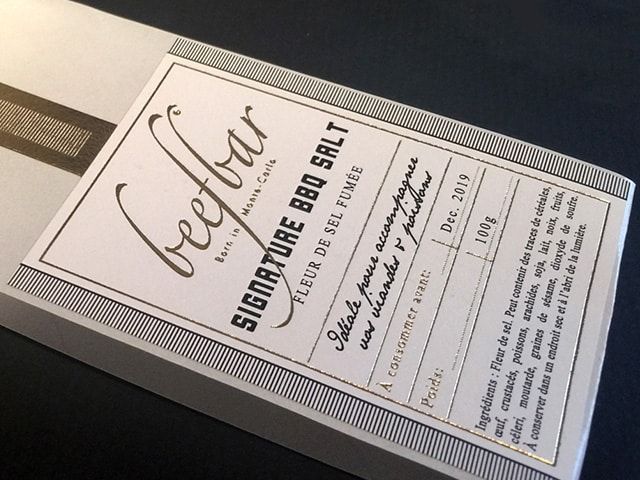 beefbar
Born in Monte-Carlo
SIGNATURE BBQ SALT
FLEUR DE SEL FUMÉE
Idéale pour accompagner
vos viandes & poissons
À consommer avant: Dec. 2019
Poids: 100g
Ingrédients : Fleur de sel. Peut contenir des traces de céréales,
œuf, crustacés, poissons, arachides, soja, lait, noix, fruits,
céleri, moutarde, graines de sésame, dioxyde de soufre.
À conserver dans un endroit sec et à l'abri de la lumière.